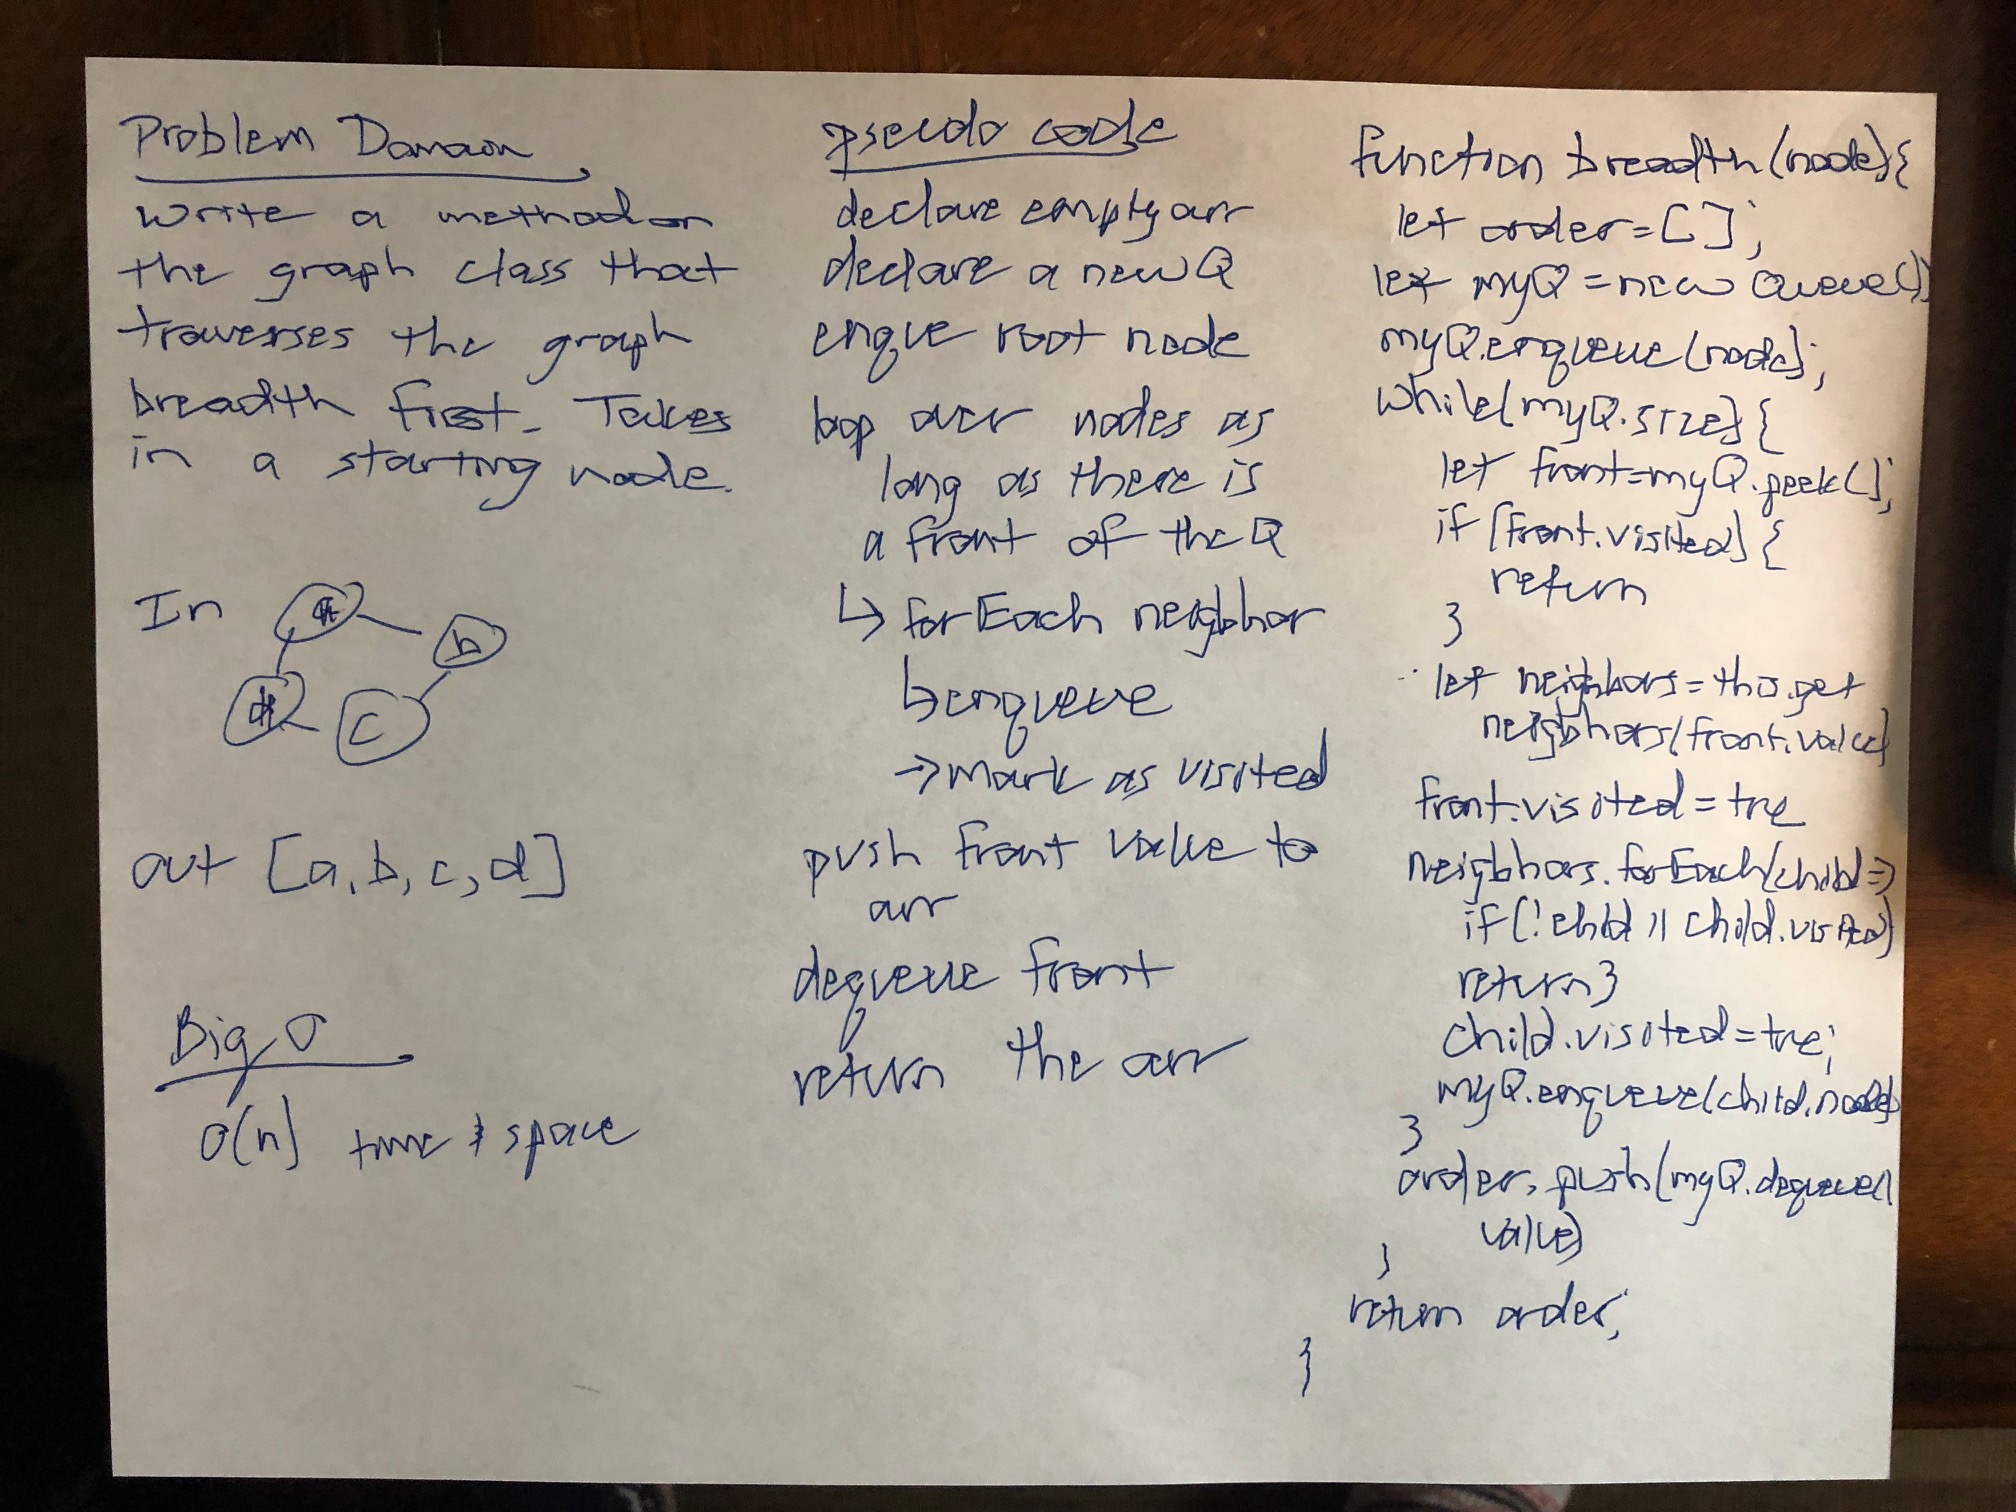 Problem Domain
write a method on
the graph class that
traverses the graph
breadth first. Takes
in a starting node.
In
a
b
c
d
out [a, b, c, d]
big O
O(n) time & space
Pseudo code
declare empty arr
declare a new Q
enque root node
loop over nodes as
long as there is
a front of the Q
↳ for Each neighbor
↳ enqueue
→ mark as visited
push front value to
arr
dequeue front
return the arr
function breadth(node){
let order=[];
let myQ=new Queue();
myQ.enqueue(node);
while(myQ.size){
let front=myQ.peek();
if(front.visited){
return
}
let neighbors=this.get
neighbors(front.value)
front.visited=true
neighbors.forEach(child=>
if(!child || child.visited)
return}
child.visited=true;
myQ.enqueue(child.node)
}
order.push(myQ.dequeue(
value)
}
return order;
}